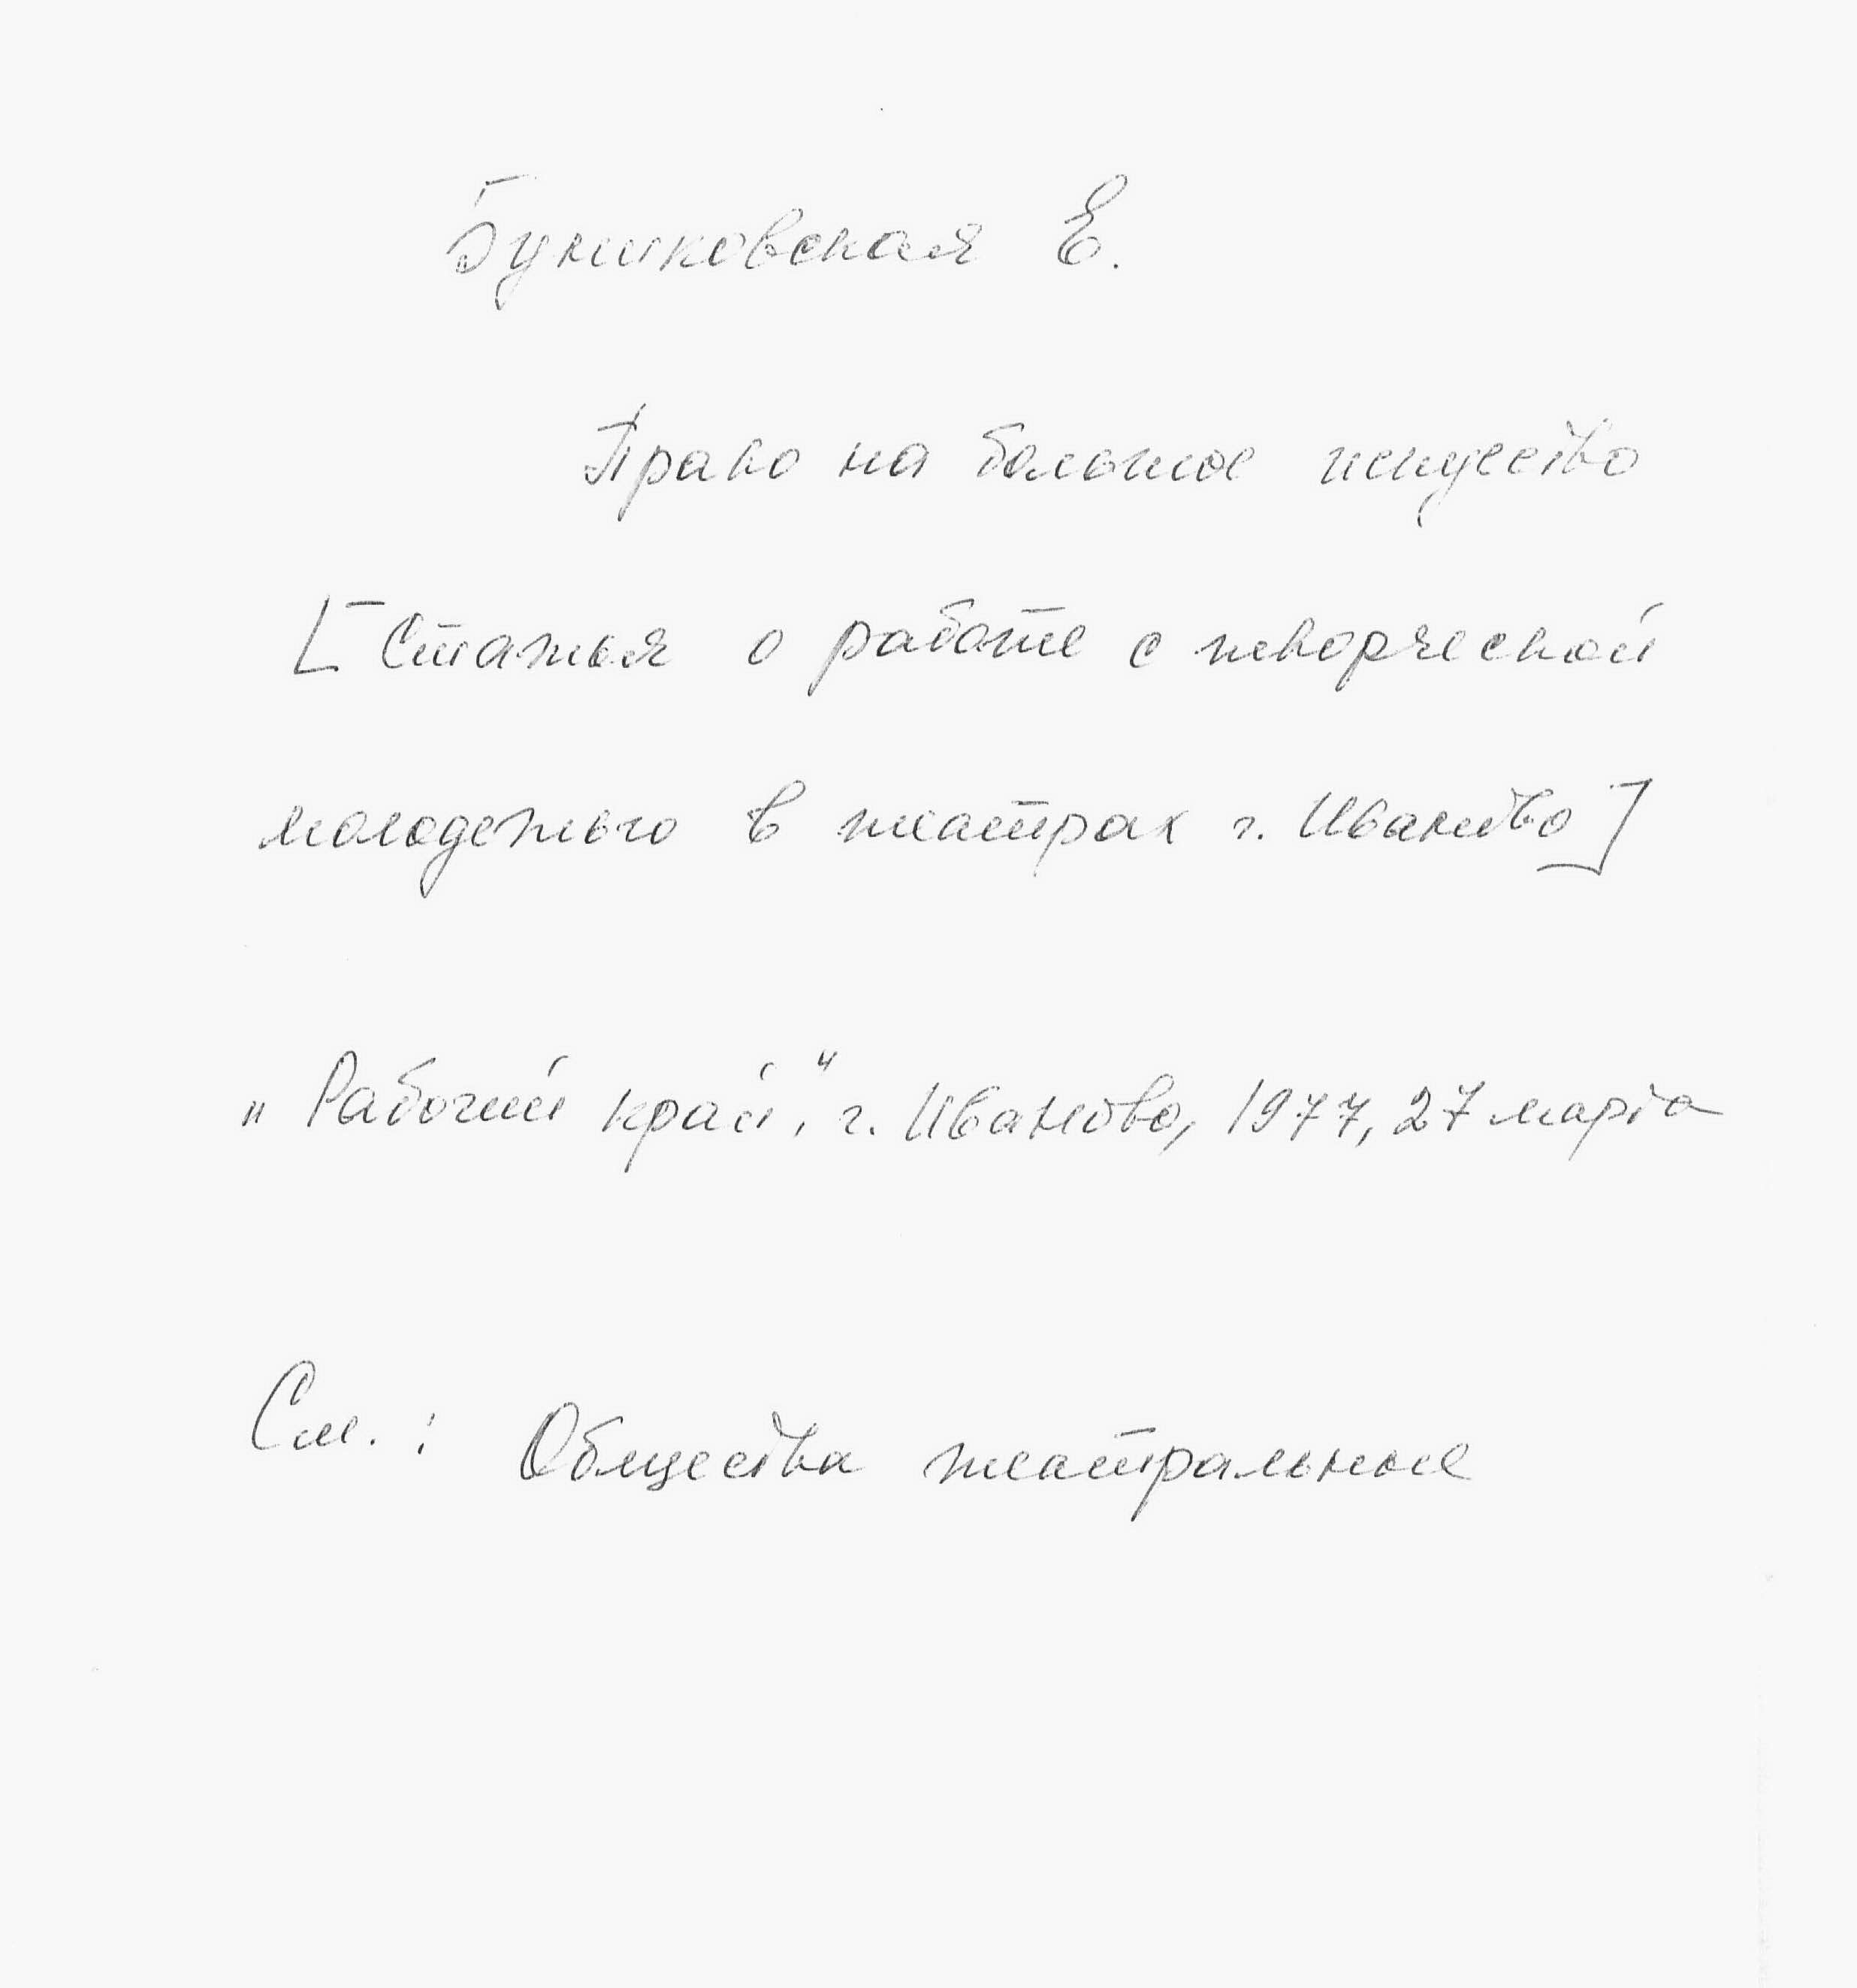 Буниковская Е.
Право на большое искусство
[Статья о работе с творческой
молодежью в театрах г. Иваново]
„Рабочий край", г. Иваново, 1977, 27 марта
См.: Общества театральные